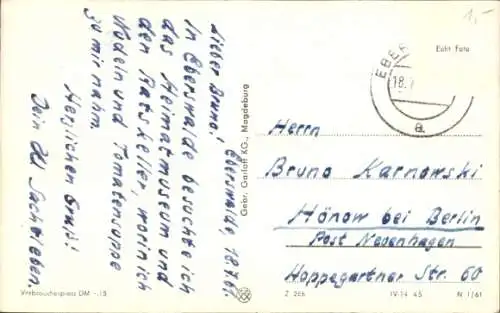 Eberswalde, 18.7.61.
Lieber Bruno!
In Eberswalde besuchte ich
das Heimatmuseum und
den Ratskeller, worin ich
Nudeln und Tomatensuppe
zu mir nahm.
Herzlichen Gruß!
Dein Sachtleben.
Verbraucherpreis DM -.15
Gebr. Garloff KG., Magdeburg
1,-
Echt Foto
EBER
18.
a
Herrn
Bruno Karnowski
Hönow bei Berlin
Post Neuenhagen
Hoppegartner Str. 60
Z 266
IV-14 45
N 1/61